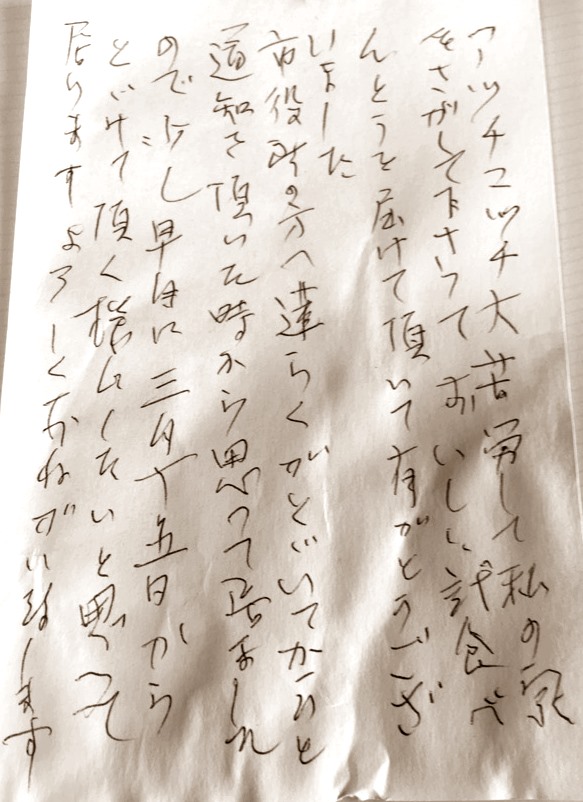 アッチコッチ大苦労して私の家
をさがして下さって おいしい試食べ
んとうを届けて頂いて有がとうござ
いました
市役所の方へ連らくがとゞいてからと
通知を頂いた時から思って居ました
ので 少し早目に 三月十五日から
とゞけて頂く様にしたいと思って
居ります よろしくおねがい致します